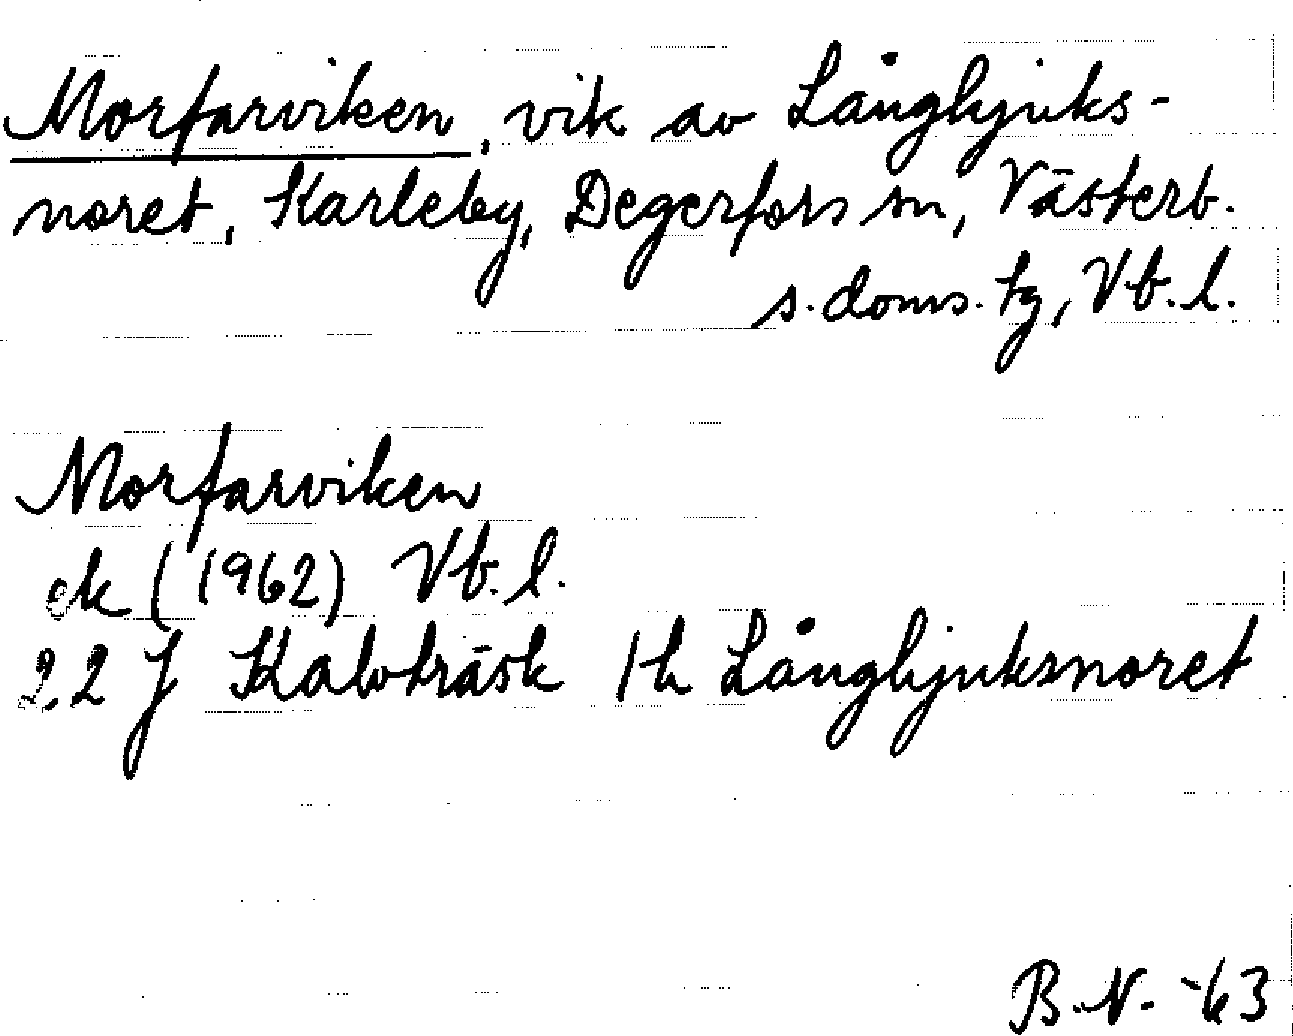 Morfarviken, vik av Långhjuks-
noret, Karleby, Degerfors sn, Västerb.
s. doms. tg, Vb. l.
Morfarviken
ek (1962) Vb. l.
22 J Kalvträsk 1 h Långhjuksnoret
B. N. -63